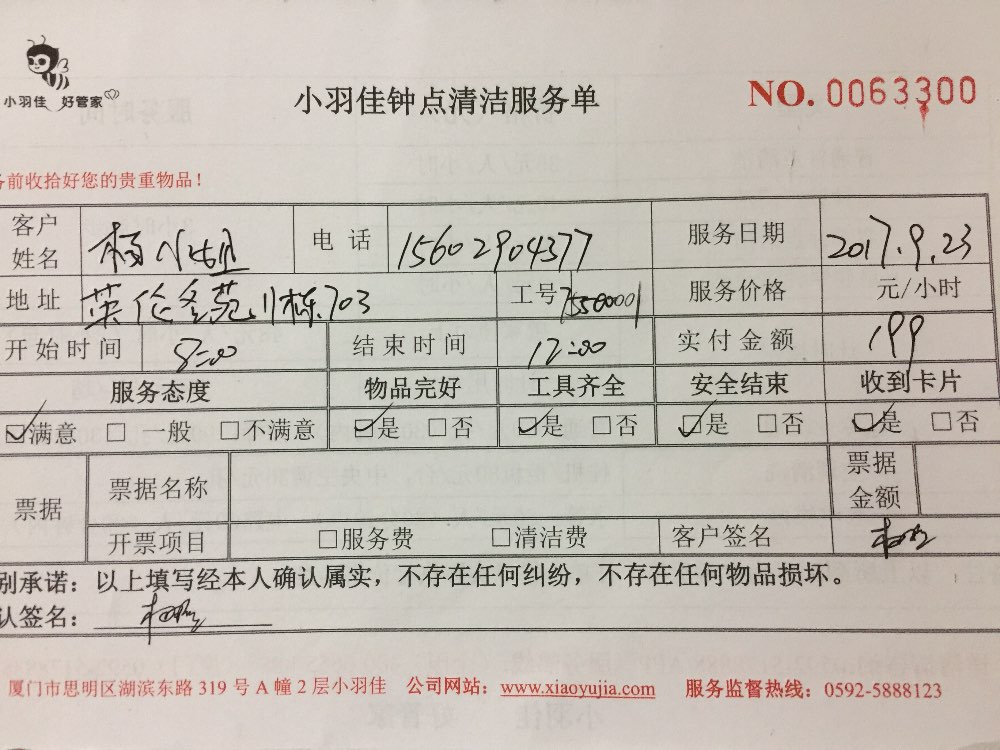 小羽佳 好管家
小羽佳钟点清洁服务单
NO. 0063300
务前收拾好您的贵重物品！
客户姓名 杨小姐 电话 15602904377 服务日期 2017.9.23
地址 英伦名苑11栋703 工号 服务价格 元/小时
开始时间 8:00 结束时间 12:00 实付金额 199
服务态度 物品完好 工具齐全 安全结束 收到卡片
☑满意 □ 一般 □不满意 ☑是 □否 ☑是 □否 ☑是 □否 ☑是 □否
票据 票据名称 票据金额
开票项目 □服务费 □清洁费 客户签名
别承诺：以上填写经本人确认属实，不存在任何纠纷，不存在任何物品损坏。
认签名：
厦门市思明区湖滨东路 319 号 A 幢 2 层小羽佳 公司网站：www.xiaoyujia.com 服务监督热线：0592-5888123